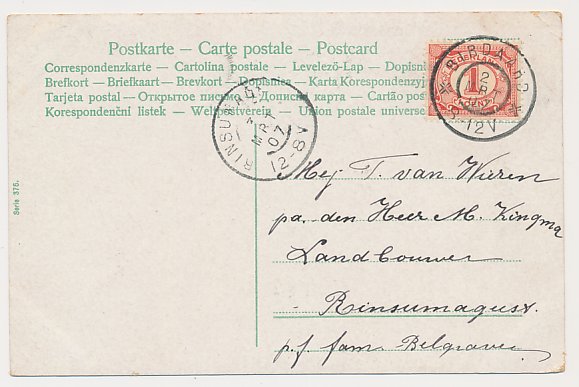 Postkarte – Carte postale – Postcard
Correspondenzkarte – Cartolina postale – Levelező-Lap – Dopisn
Brefkort – Briefkaart – Brevkort – Dopisnica – Karta Korespondenzyj
Tarjeta postal – Открытое письмо – Дописна карта – Cartão posta
Korespondenční lístek – Weltpostverein – Union postale universe
BIRDAARD
NEDERLAND
1
CENT
12V
RINSUMAG
MRT
07
12-8V
Mej T. van Wieren
pa. den Heer M. Kingma
Landbouwer
Rinsumagust.
p.f. fam. Belgraver
Serie 375.